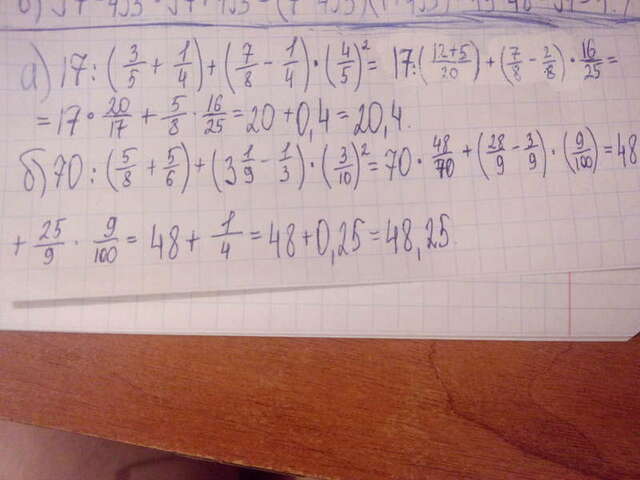 а) 17 : (3/5 + 1/4) + (7/8 - 1/4) · (4/5)² = 17 : (12+5/20) + (7/8 - 2/8) · 16/25 =
= 17 · 20/17 + 5/8 · 16/25 = 20 + 0,4 = 20,4.
б) 70 : (5/8 + 5/6) + (3 1/9 - 1/3) · (3/10)² = 70 · 48/70 + (28/9 - 3/9) · (9/100) = 48
+ 25/9 · 9/100 = 48 + 1/4 = 48 + 0,25 = 48,25.